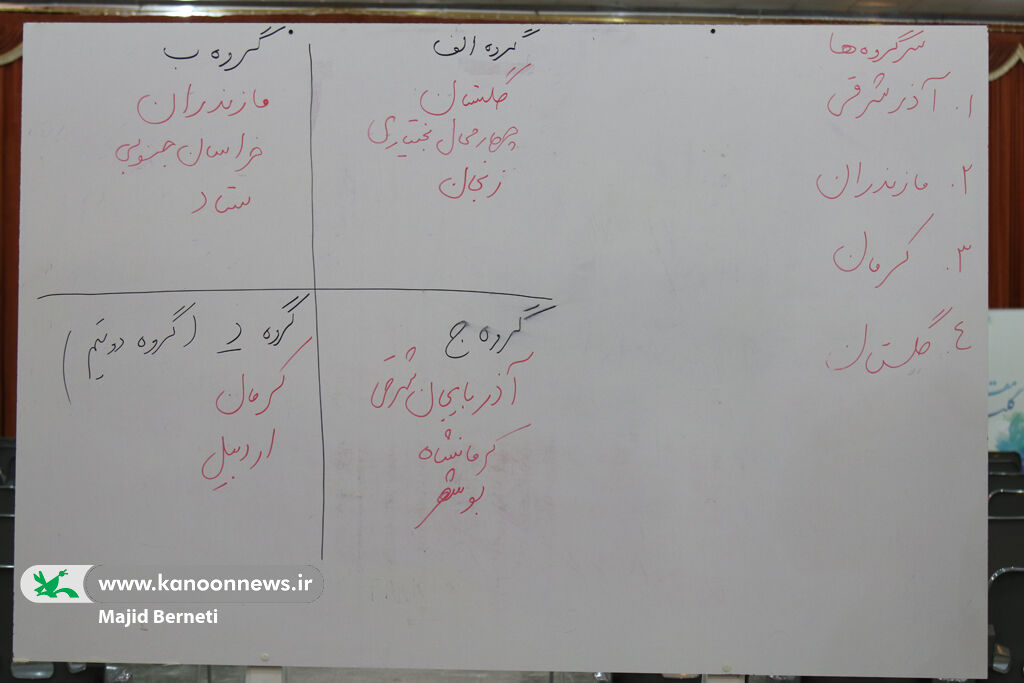 سرگروه ها
۱. آذر شرقی
۲. مازندران
۳. کرمان
٤. گلستان
گروه الف
گلستان
چهارمحال بختیاری
زنجان
گروه ب
مازندران
خراسان جنوبی
ستاد
گروه ج
آذربایجان شرقی
کرمانشاه
بوشهر
گروه د (گروه دو تیم)
کرمان
اردبیل
www.kanoonnews.ir
Majid Berneti